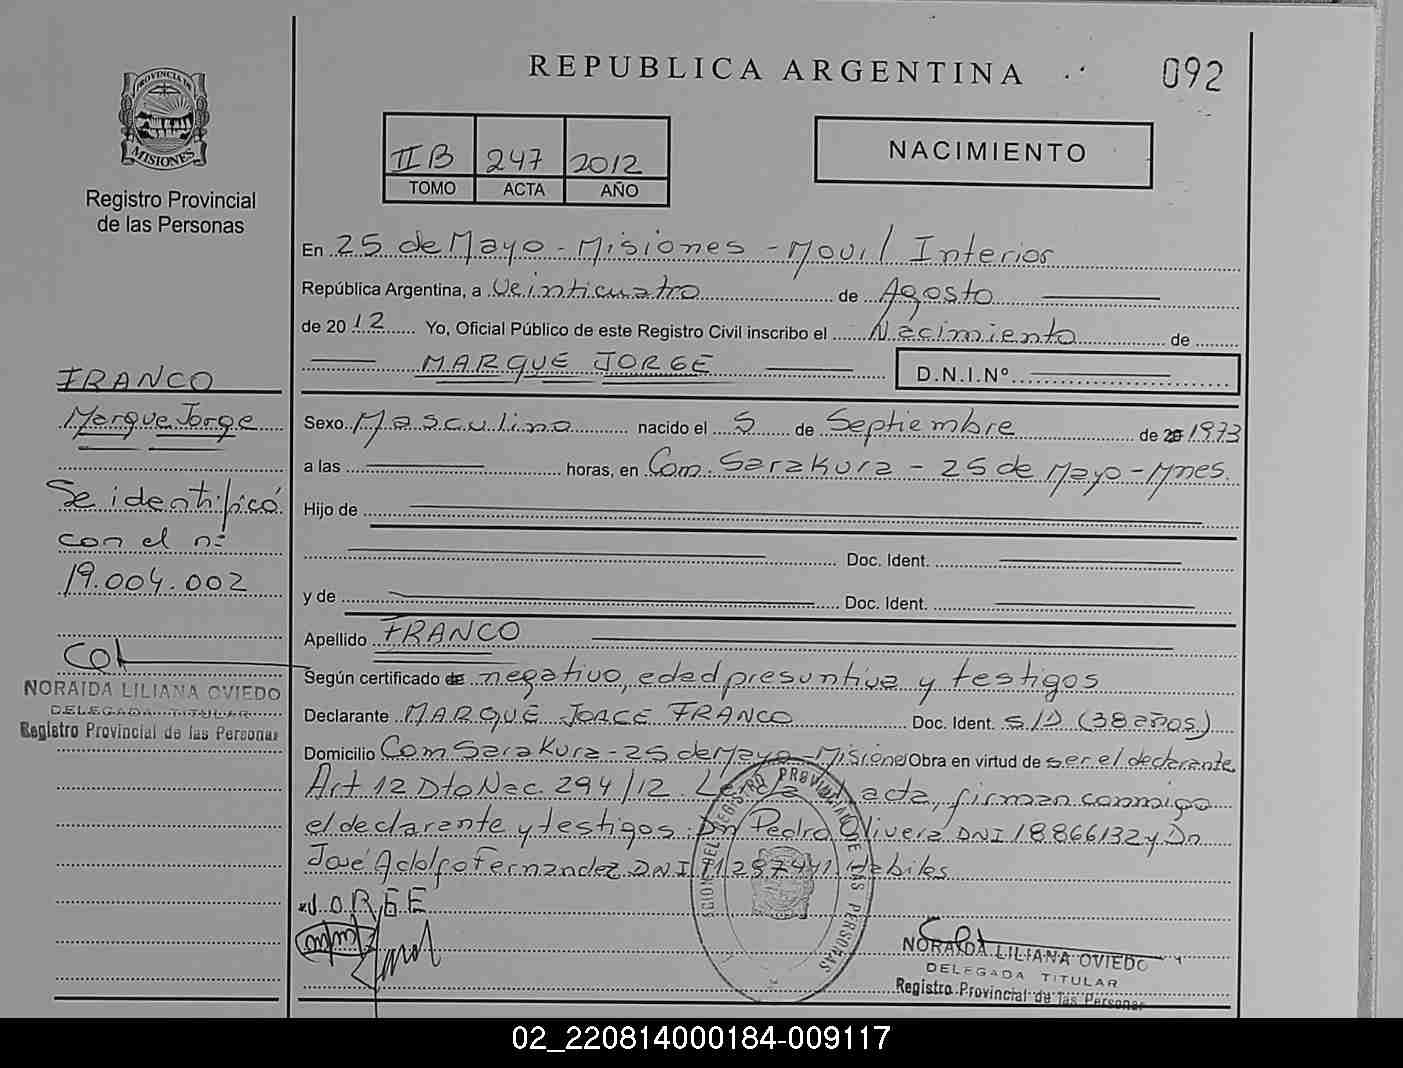 REPUBLICA ARGENTINA
092
PROVINCIA DE
MISIONES
Registro Provincial
de las Personas
II B 247 2012
TOMO ACTA AÑO
NACIMIENTO
En 25 de Mayo - Misiones - Movil Interior
República Argentina, a Veinticuatro de Agosto
de 2012 Yo, Oficial Público de este Registro Civil inscribo el Nacimiento de
MARQUE JORGE
D.N.I.Nº
FRANCO
Marque Jorge
Se identificó
con el nº
19.004.002
NORAIDA LILIANA OVIEDO
DELEGADA TITULAR
Registro Provincial de las Personas
Sexo Masculino nacido el 5 de Septiembre de 1973
a las horas, en Com. Sarakura - 25 de Mayo - Mnes.
Hijo de
Doc. Ident.
y de Doc. Ident.
Apellido FRANCO
Según certificado de negativo, edad presuntiva y testigos
Declarante MARQUE JORGE FRANCO Doc. Ident. S/D (38 años)
Domicilio Com Sarakura - 25 de Mayo - Misiones Obra en virtud de ser el declarante
Art 12 Dto Nac. 294/12. Leída el acta, firman conmigo
el declarante y testigos: Dn Pedro Olivera DNI 18866132 y Dn
José Adolfo Fernandez DNI 11287441 habiles
JORGE
REGISTRO PROVINCIAL DE LAS PERSONAS
NORAIDA LILIANA OVIEDO
DELEGADA TITULAR
Registro Provincial de las Personas
02_220814000184-009117